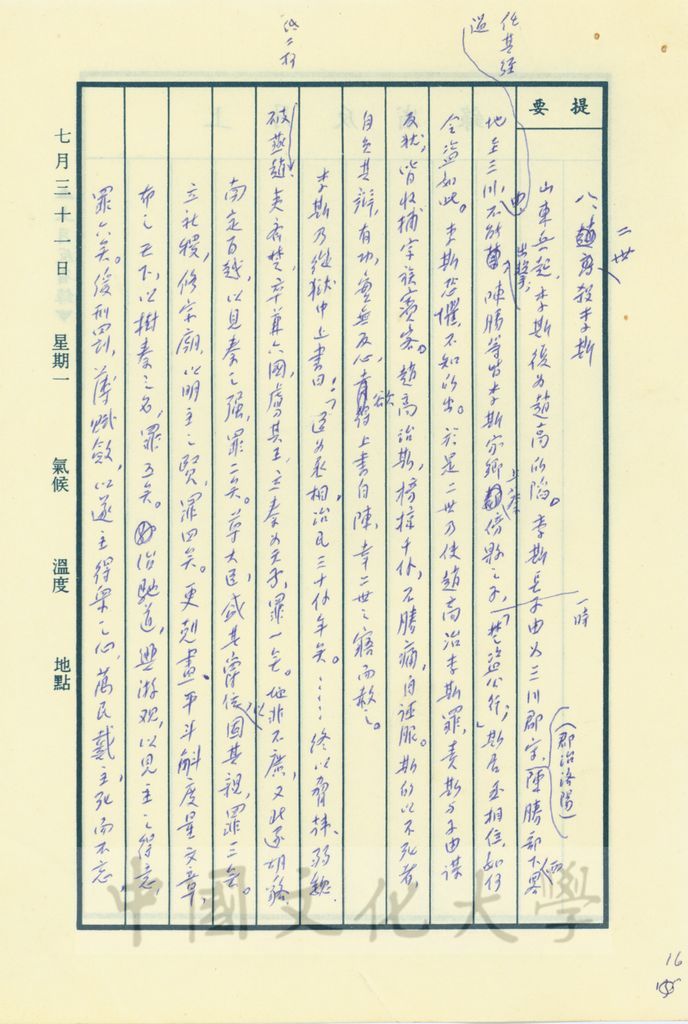 提要
八、二世殺李斯
山東兵起，李斯後為趙高所陷。李斯長子由為三川郡守，陳勝部下西
(郡治洛陽)
一時
任其經過
地至三川，不能
出擊，
陳勝等皆李斯家鄉
上蔡
傍縣之子，「楚盜公行；」斯居丞相位，如何
令盜如此。李斯恐懼，不知所出。於是二世乃使趙高治李斯罪，責斯與子由謀
反狀，皆收捕宗族賓客。趙高治斯，榜掠千餘，不勝痛，自誣服。斯所以不死者，
自負其辯，有功，實無反心，欲上書自陳，幸二世之寤而赦之。
李斯乃從獄中上書曰：「臣為丞相治民三十餘年矣。……終以脅韓、弱魏、
破燕趙、夷齊楚，卒兼六國，虜其王，立秦為天子，罪一矣。地非不廣，又北逐胡貉，
南定百越，以見秦之強，罪二矣。尊大臣，盛其爵位，以固其親，罪三矣。
立社稷，修宗廟，以明主之賢，罪四矣。更剋畫、平斗斛度量文章，
布之天下，以樹秦之名，罪五矣。治馳道，興游觀，以見主之得意，
罪六矣。緩刑罰，薄賦斂，以遂主得眾之心，萬民戴主，死而不忘，
七月三十一日 星期一 氣候 溫度 地點
16
中國文化大學